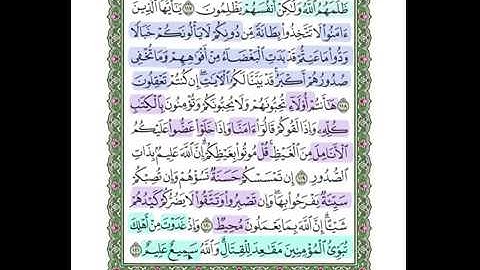 ظَلَمَهُمُ ٱللَّهُ وَلَٰكِنْ أَنفُسَهُمْ يَظْلِمُونَ ١١٧ يَٰٓأَيُّهَا ٱلَّذِينَ
ءَامَنُوا۟ لَا تَتَّخِذُوا۟ بِطَانَةً مِّن دُونِكُمْ لَا يَأْلُونَكُمْ خَبَالًا
وَدُّوا۟ مَا عَنِتُّمْ قَدْ بَدَتِ ٱلْبَغْضَآءُ مِنْ أَفْوَٰهِهِمْ وَمَا تُخْفِى
صُدُورُهُمْ أَكْبَرُ ۚ قَدْ بَيَّنَّا لَكُمُ ٱلْءَايَٰتِ ۖ إِن كُنتُمْ تَعْقِلُونَ
١١٨ هَٰٓأَنتُمْ أُو۟لَآءِ تُحِبُّونَهُمْ وَلَا يُحِبُّونَكُمْ وَتُؤْمِنُونَ بِٱلْكِتَٰبِ
كُلِّهِۦ وَإِذَا لَقُوكُمْ قَالُوٓا۟ ءَامَنَّا وَإِذَا خَلَوْا۟ عَضُّوا۟ عَلَيْكُمُ
ٱلْأَنَامِلَ مِنَ ٱلْغَيْظِ ۚ قُلْ مُوتُوا۟ بِغَيْظِكُمْ ۗ إِنَّ ٱللَّهَ عَلِيمٌۢ بِذَاتِ
ٱلصُّدُورِ ١١٩ إِن تَمْسَسْكُمْ حَسَنَةٌ تَسُؤْهُمْ وَإِن تُصِبْكُمْ
سَيِّئَةٌ يَفْرَحُوا۟ بِهَا ۖ وَإِن تَصْبِرُوا۟ وَتَتَّقُوا۟ لَا يَضُرُّكُمْ كَيْدُهُمْ
شَيْـًٔا ۗ إِنَّ ٱللَّهَ بِمَا يَعْمَلُونَ مُحِيطٌ ١٢٠ وَإِذْ غَدَوْتَ مِنْ أَهْلِكَ
تُبَوِّئُ ٱلْمُؤْمِنِينَ مَقَٰعِدَ لِلْقِتَالِ ۗ وَٱللَّهُ سَمِيعٌ عَلِيمٌ ١٢١